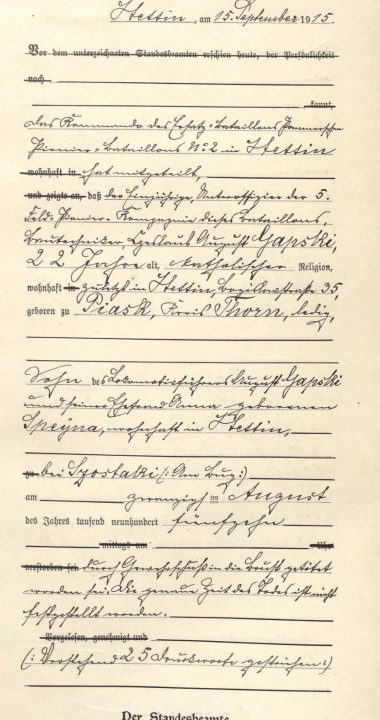 Stettin, am 15. September 1915.
Vor dem unterzeichneten Standesbeamten erschien heute, der Persönlichkeit
nach
kannt,
das Kommando des Ersatz-Bataillons Pommersches
Pionier-Bataillons No 2 in Stettin
wohnhaft in hat mitgeteilt,
und zeigte an, daß der Einjährige, Unteroffizier der 5.
Feld-Pionier-Kompagnie dieses Bataillons,
Bautechniker, August Gapski,
22 Jahre alt, katholischer Religion,
wohnhaft in zuletzt in Stettin, 35,
geboren zu Piask, Kreis Thorn, ledig,
Sohn des Lokomotivführers August Gapski
und seiner Ehefrau Anna geborenen
Speyna, wohnhaft in Stettin,
zu bei Szostaki (: Am Bug :)
am zwanzigsten August
des Jahres tausend neunhundert fünfzehn
mittags um Uhr
verstorben sei durch Gewehrschuß in die Brust getötet
worden sei. Die genaue Zeit des Todes ist nicht
festgestellt worden.
Vorgelesen, genehmigt und
(: Vorstehend 25 Druckworte gestrichen :)
Der Standesbeamte